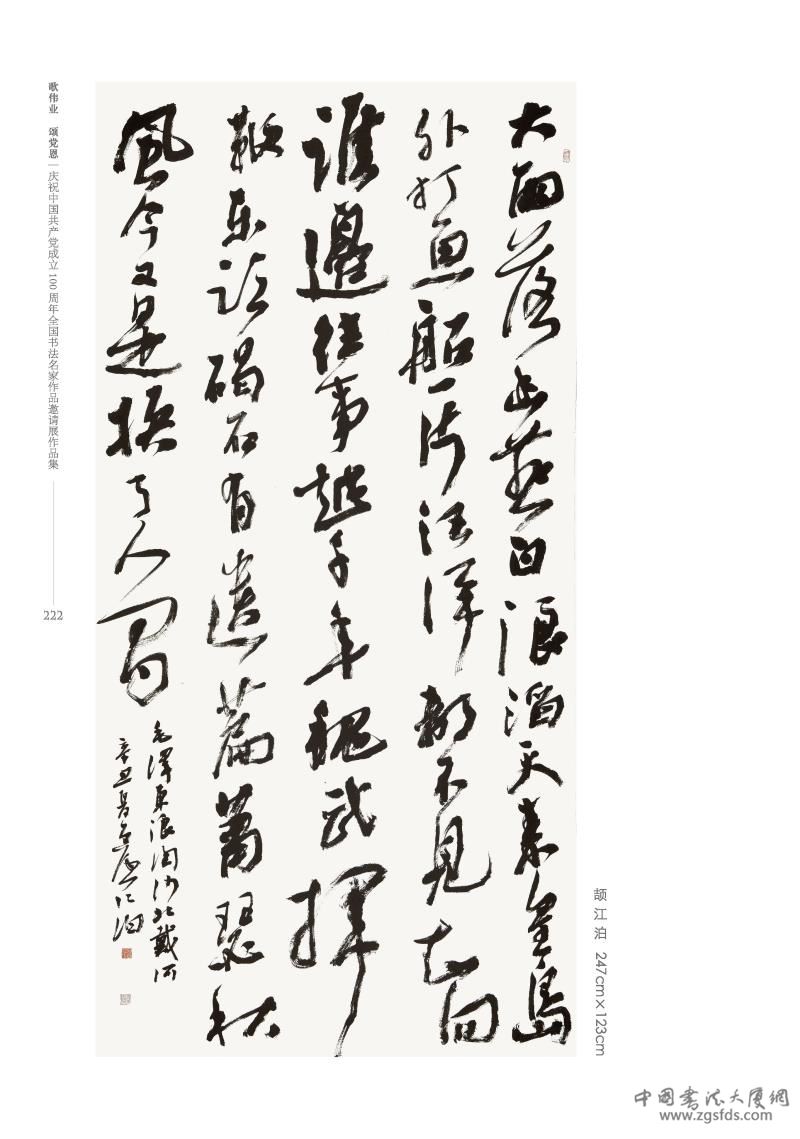 大雨落幽燕白浪滔天秦皇島
外打魚船一片汪洋都不見知向
誰邊往事越千年魏武揮
鞭東臨碣石有遺篇蕭瑟秋
風今又是換了人間
毛澤東浪淘沙北戴河
辛丑夏江泊
歌伟业 颂党恩 | 庆祝中国共产党成立100周年全国书法名家作品邀请展作品集
222
颉江泊 247cm×123cm
中國書法大厦網
www.zgsfds.com